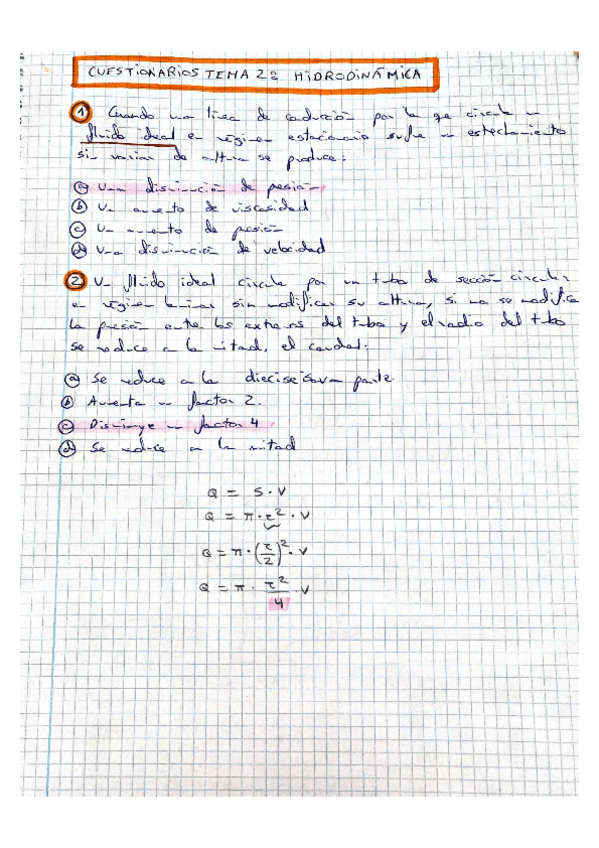 CUESTIONARIOS TEMA 2: HIDRODINÁMICA
1 Cuando una línea de conducción por la que circula un
fluido ideal en régimen estacionario sufre un estrechamiento
sin variar de altura se produce:
a Una disminución de presión
b Un aumento de viscosidad
c Un aumento de presión
d Una disminución de velocidad
2 Un fluido ideal circula por un tubo de sección circular
en régimen laminar sin modificar su altura, si no se modifica
la presión entre los extremos del tubo y el radio del tubo
se reduce a la mitad, el caudal:
a Se reduce a la dieciseisava parte.
b Aumenta un factor 2.
c Disminuye un factor 4
d Se reduce a la mitad
Q = S · V
Q = π · r² · V
Q = π · (r/2)² · V
Q = π · r²/4 · V